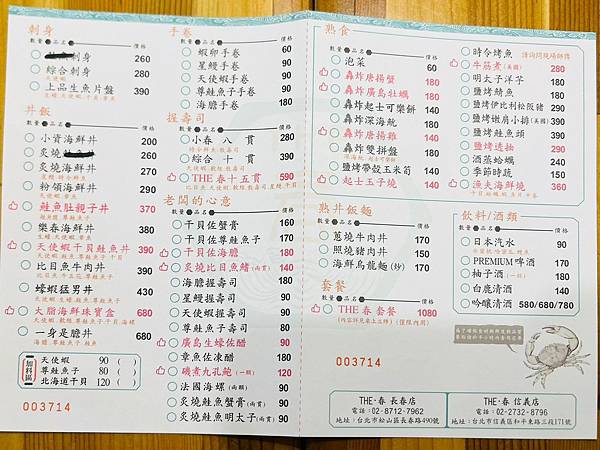 刺身
數量 品名 價格
刺身 260
綜合刺身 280
上品生魚片盤 390
丼飯
數量 品名 價格
小資海鮮丼 200
炙燒 270
炙燒海鮮丼 270
粉領海鮮丼 290
鮭魚肚親子丼 370
樂春海鮮丼 380
天使蝦干貝鮭魚丼 390
比目魚牛肉丼 390
蠔蝦猛男丼 430
大脂海鮮珠寶盒 680
一身是膽丼 680
加料區
天使蝦 90 ( )
尊鮭魚子 80 ( )
北海道干貝 120 ( )
003714
手卷
數量 品名 價格
蝦卵手卷 60
星鰻手卷 90
天使蝦手卷 90
尊鮭魚子手卷 90
海膽手卷 180
握壽司
數量 品名 價格
小春 八 貫 280
綜合 十 貫 390
THE 春十五貫 590
老闆的心意
數量 品名 價格
干貝佐蟹膏 160
干貝佐尊鮭魚子 160
干貝佐海膽 180
炙燒比目魚鰭(兩貫) 140
海膽握壽司 180
星鰻握壽司 90
天使蝦握壽司 90
尊鮭魚握壽司 80
廣島生蠔佐醋 90
章魚佐凍醋 180
磯煮九孔鮑(一顆) 120
法國海螺(兩顆) 90
炙燒鮭魚蟹膏(兩貫) 90
炙燒鮭魚明太子(兩貫) 90
熟食
數量 品名 價格
泡菜 60
轟炸唐揚蟹 180
轟炸廣島牡蠣 180
轟炸起士可樂餅 140
轟炸深海魷 180
轟炸唐揚雞 180
轟炸雙拼盤 240
鹽烤帶殼玉米筍 140
起士玉子燒 140
時令烤魚 請詢問現場師傅
牛筋煮(美國) 280
明太子洋芋 180
鹽烤鯖魚 180
鹽烤伊比利松阪豬 290
鹽烤嫩肩小排(美國) 390
鹽烤鮭魚頭 390
鹽烤透抽 290
酒蒸蛤蠣 240
季節時蔬 150
漁夫海鮮燒 360
熟丼飯麵
數量 品名 價格
蔥燒牛肉丼 170
照燒豬肉丼 150
海鮮烏龍麵(炒) 170
套餐
數量 品名 價格
THE 春 套餐 1080
飲料/酒類
數量 品名 價格
日本汽水 90
PREMIUM啤酒 170
柚子酒(一杯) 180
白鹿清酒 180
吟釀清酒 580/680/780
003714
THE·春 長春店
電話:02-8712-7962
地址:台北市松山區長春路490號
THE·春 信義店
電話:02-2732-8796
地址:台北市信義區和平東路三段171號